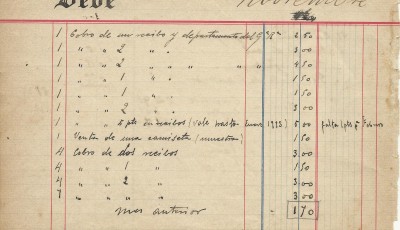 Debe Noviembre
1 Cobro de un recibo y departamento del 9 2 50
1 " " 2 " " 3 00
1 " " 2 " " " " " " 4 50
1 " " 1 " " 1 50
1 " " 2 " " 3 00
1 " " 1 " " 1 50
1 " " 5 pts en recibos (vale hasta Enero 1923) 5 00 falta 1 pts
1 Venta de una camiseta (muestra) 3 00
4 Cobro de dos recibos 3 00
4 " " 1 " 1 50
4 " " 2 " 3 00
7 " " " " 3 00
mes anterior 1 70